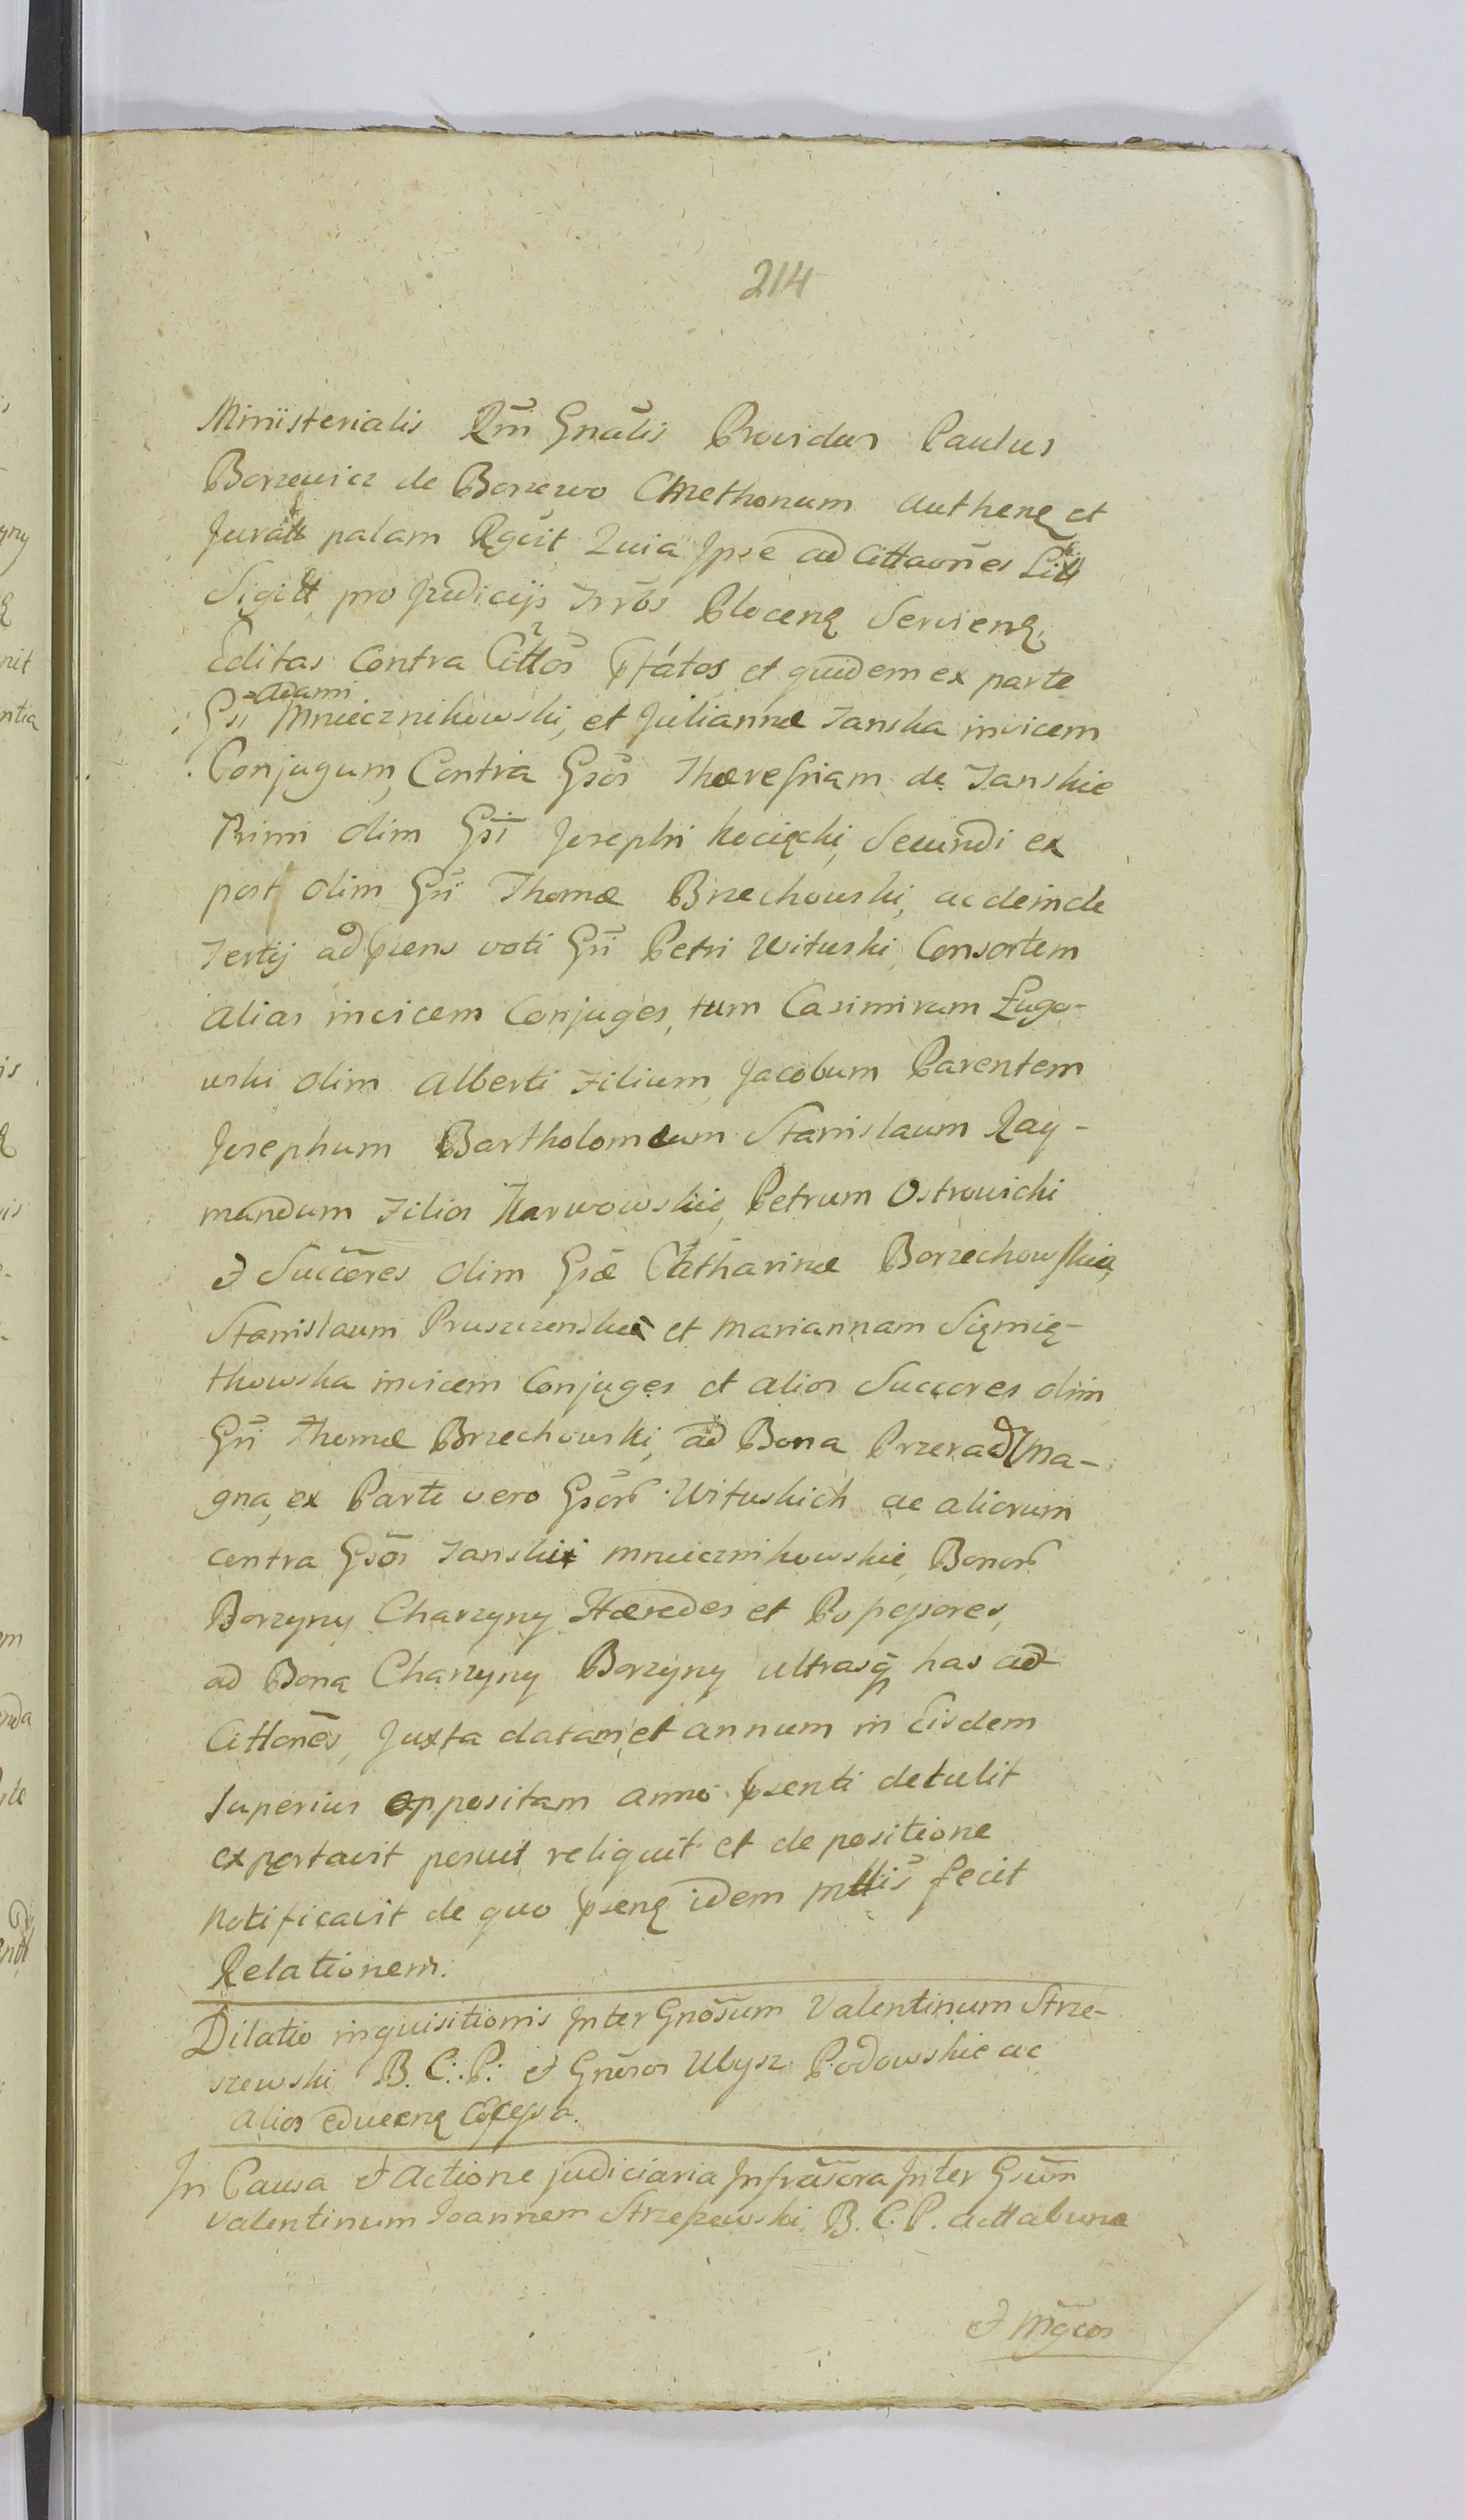 214
Ministerialis Rñi Gnãlis Providus Paulus
Borzewicz de Borzewo Cmethonum Authenꝗ et
Juratt palam Rgvit Quia Ipse ad Cittaõnes Litt
Sigitt pro Judicijs Trrõs Plocenꝗ Servienꝗ
Editas Contra Cittõs Pfátos et quidem ex parte
Adami
Gsi Mniecznikowski, et Julianna Janska invicem
Conjugum, Contra Gsõs Theressiam de Janskie
Primi olim Gsi Josephi Kocięcki, Secundi ex
post olim Gsi Thomæ Brzechowski, ac deinde
Tertij ad præns voti Gsi Petri Wituski, Consortem
alias invicem Conjuges, tum Casimirum Ługo-
wski olim Alberti Filium, Jacobum Parentem
Josephum Bartholomeum Stanislaum Ray-
mundum Filios Karwowskie, Petrum Ostrowicki
et Succẽres olim Gsæ Catharinæ Borzechowskia,
Stanislaum Pruszczenskie et Mariannam Siemią-
tkowska invicem Conjuges et alios Succores olim
Gsi Thomæ Brzechowski, ad Bona Przerad Ma-
gna, ex Parte vero Gsõr Wituskich ac aliorum
contra Gsõs Janskie Mniecznikowskie, Bonor
Borzyny Charzyny Hæredes et Possessores,
ad Bona Charzyny Borzyny ultrasq has ad
Cittonẽs, Juxta datam et annum in Eisdem
superius oppositam anno psenti detulit
expertavit posuit reliquit et de positione
notificavit de quo psenꝗ idem mttis fecit
Relationem.
Dilatio inquisitionis Inter Gnõsum Valentinum Strze-
szewski B. C: P: et Gnẽsos Ubysz Podowskie ac
alios eduenꝗ Cõcessa.
In Causa et Actione judiciaria Infrãscra Inter Gsũm
Valentinum Joannem Strzeszewski B. C. P. acttabune
et Mgcos